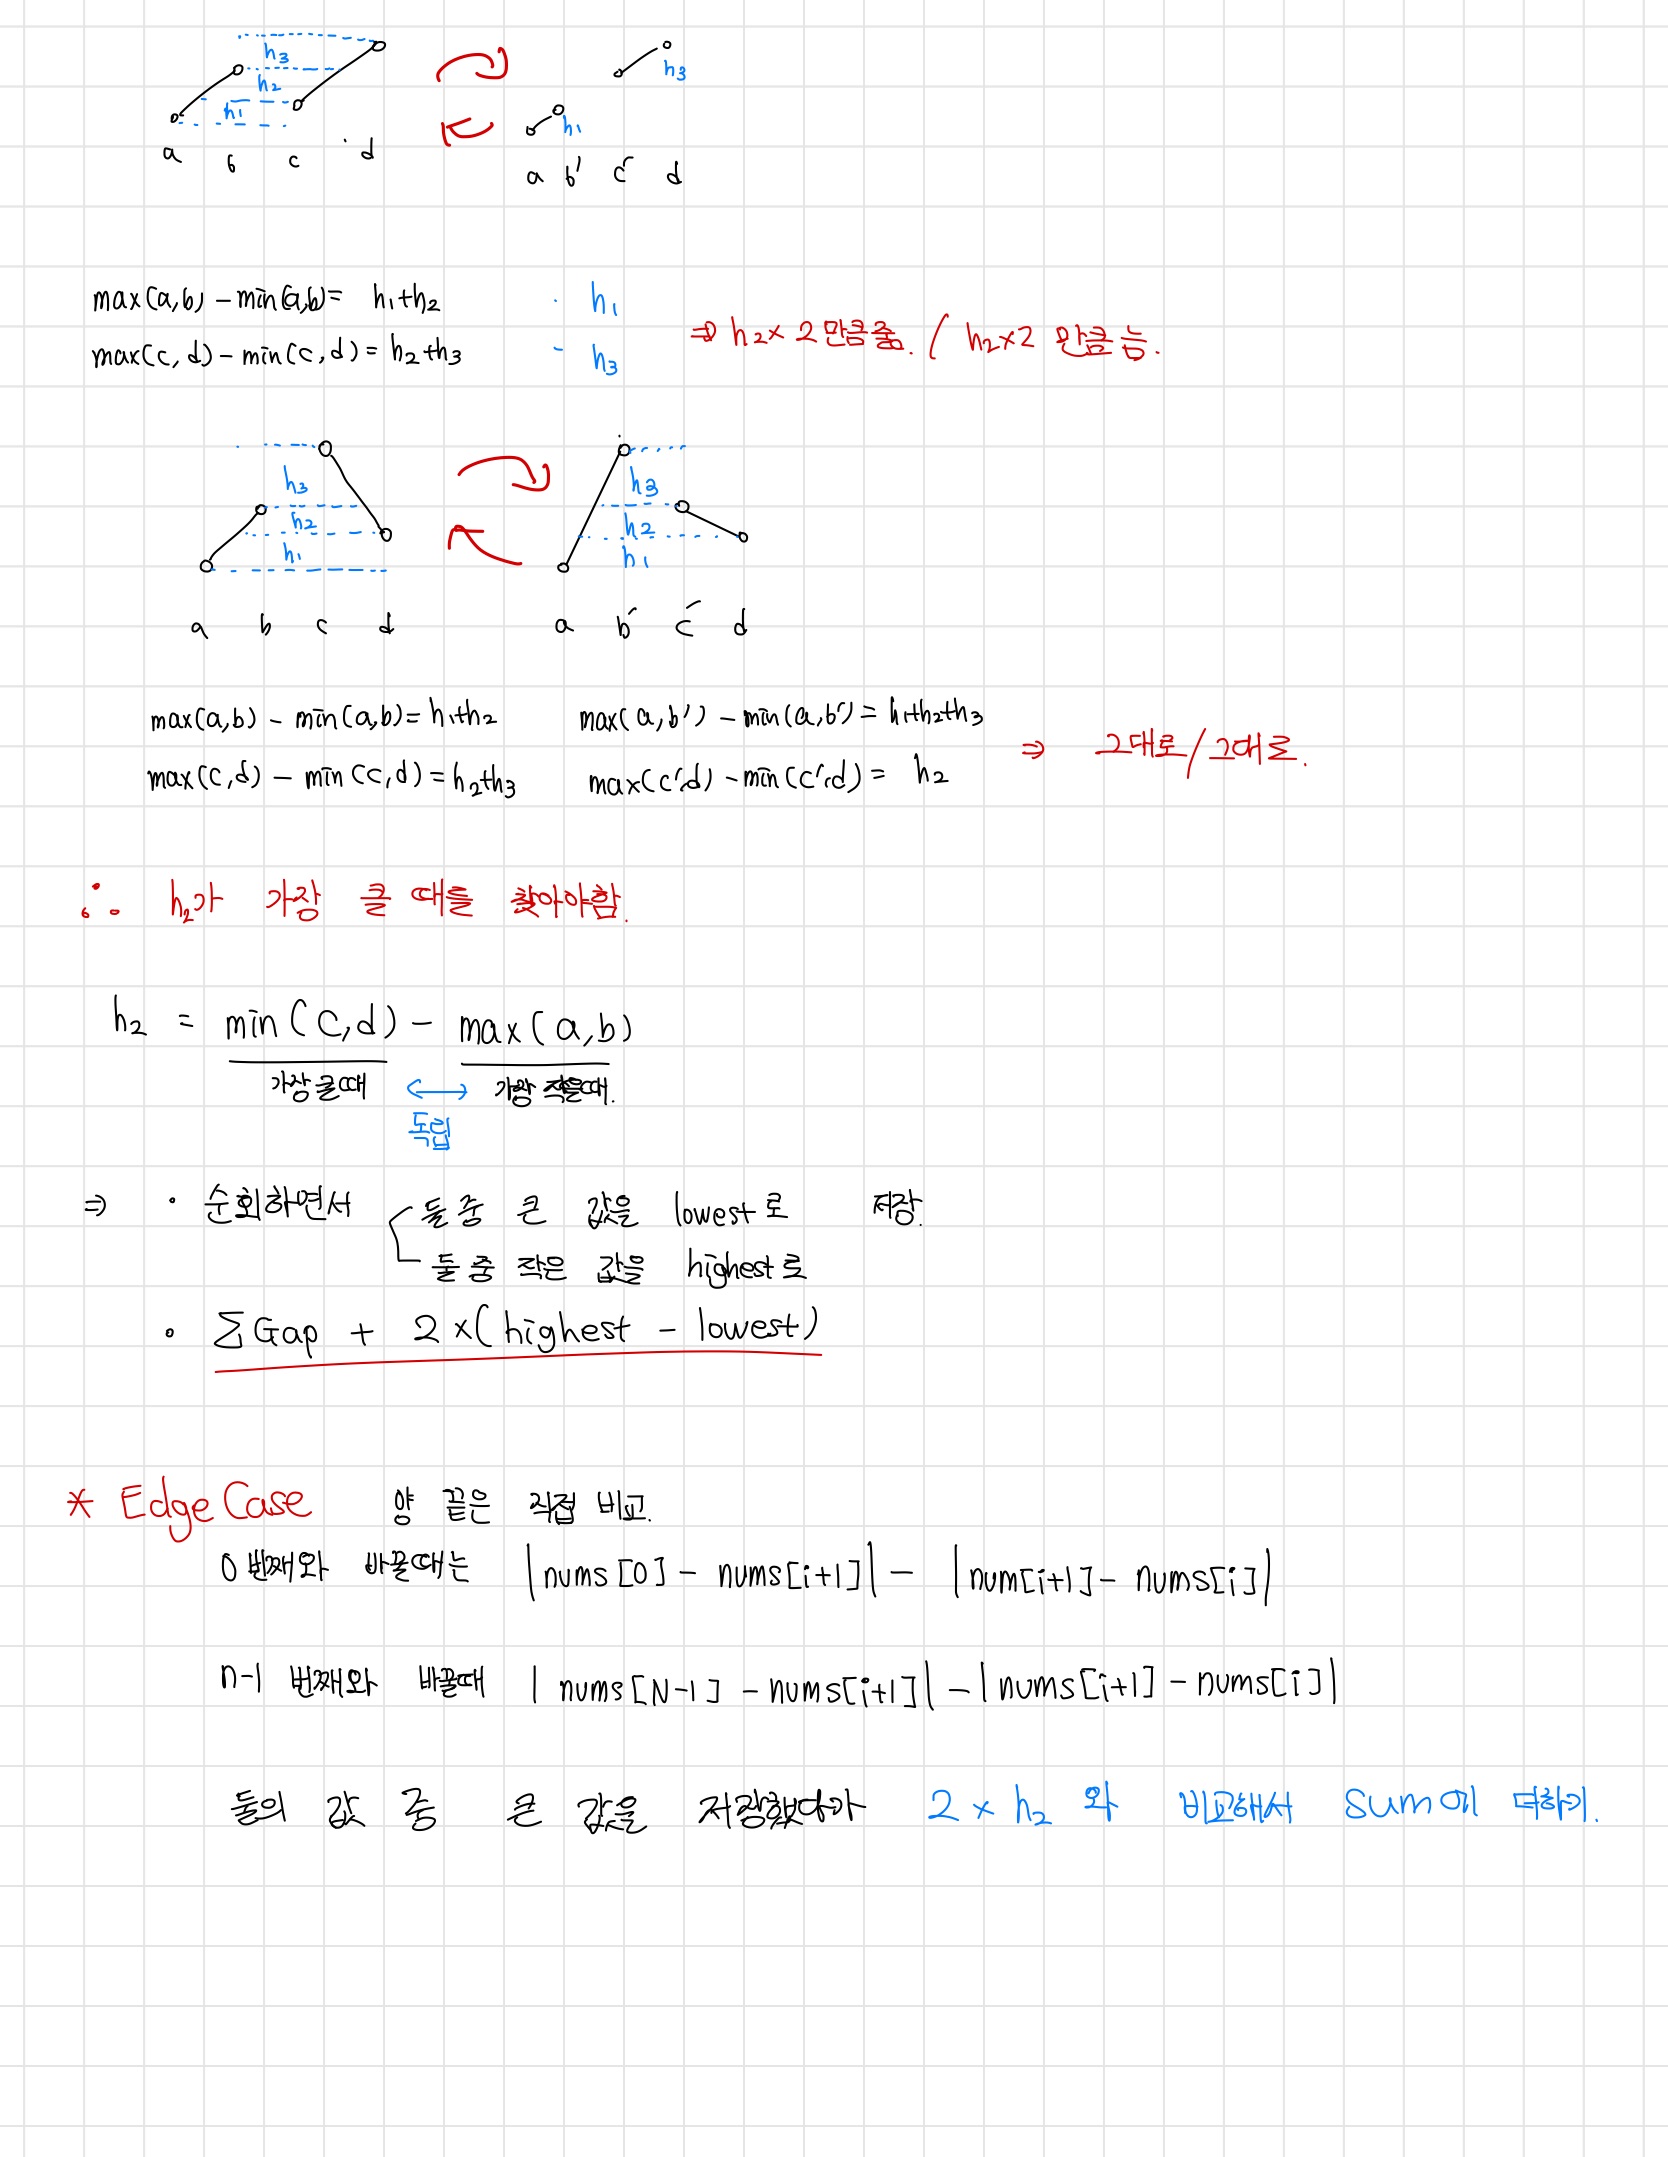 h₃
h₂
h₁
a b c d
h₃
h₁
a b' c' d
max(a,b) - min(a,b) = h₁+h₂ · h₁
max(c,d) - min(c,d) = h₂+h₃ - h₃
⇒ h₂×2 만큼 줆. / h₂×2 만큼 늠.
h₃
h₂
h₁
a b c d
h₃
h₂
h₁
a b' c' d
max(a,b) - min(a,b) = h₁+h₂ max(a,b') - min(a,b') = h₁+h₂+h₃
max(c,d) - min(c,d) = h₂+h₃ max(c',d) - min(c',d) = h₂
⇒ 그대로/그대로.
∴ h₂가 가장 클 때를 찾아야함.
h₂ = min(c,d) - max(a,b)
가장 클때 ↔ 가장 작을때.
독립
⇒ · 순회하면서 둘 중 큰 값을 lowest로 저장.
둘 중 작은 값을 highest로
· ΣGap + 2×(highest - lowest)
* Edge Case 양 끝은 직접 비교.
0번째와 바꿀때는 |nums[0] - nums[i+1]| - |num[i+1] - nums[i]|
n-1 번째와 바꿀때 |nums[N-1] - nums[i+1]| - |nums[i+1] - nums[i]|
둘의 값 중 큰 값을 저장했다가 2×h₂ 와 비교해서 sum에 더하기.